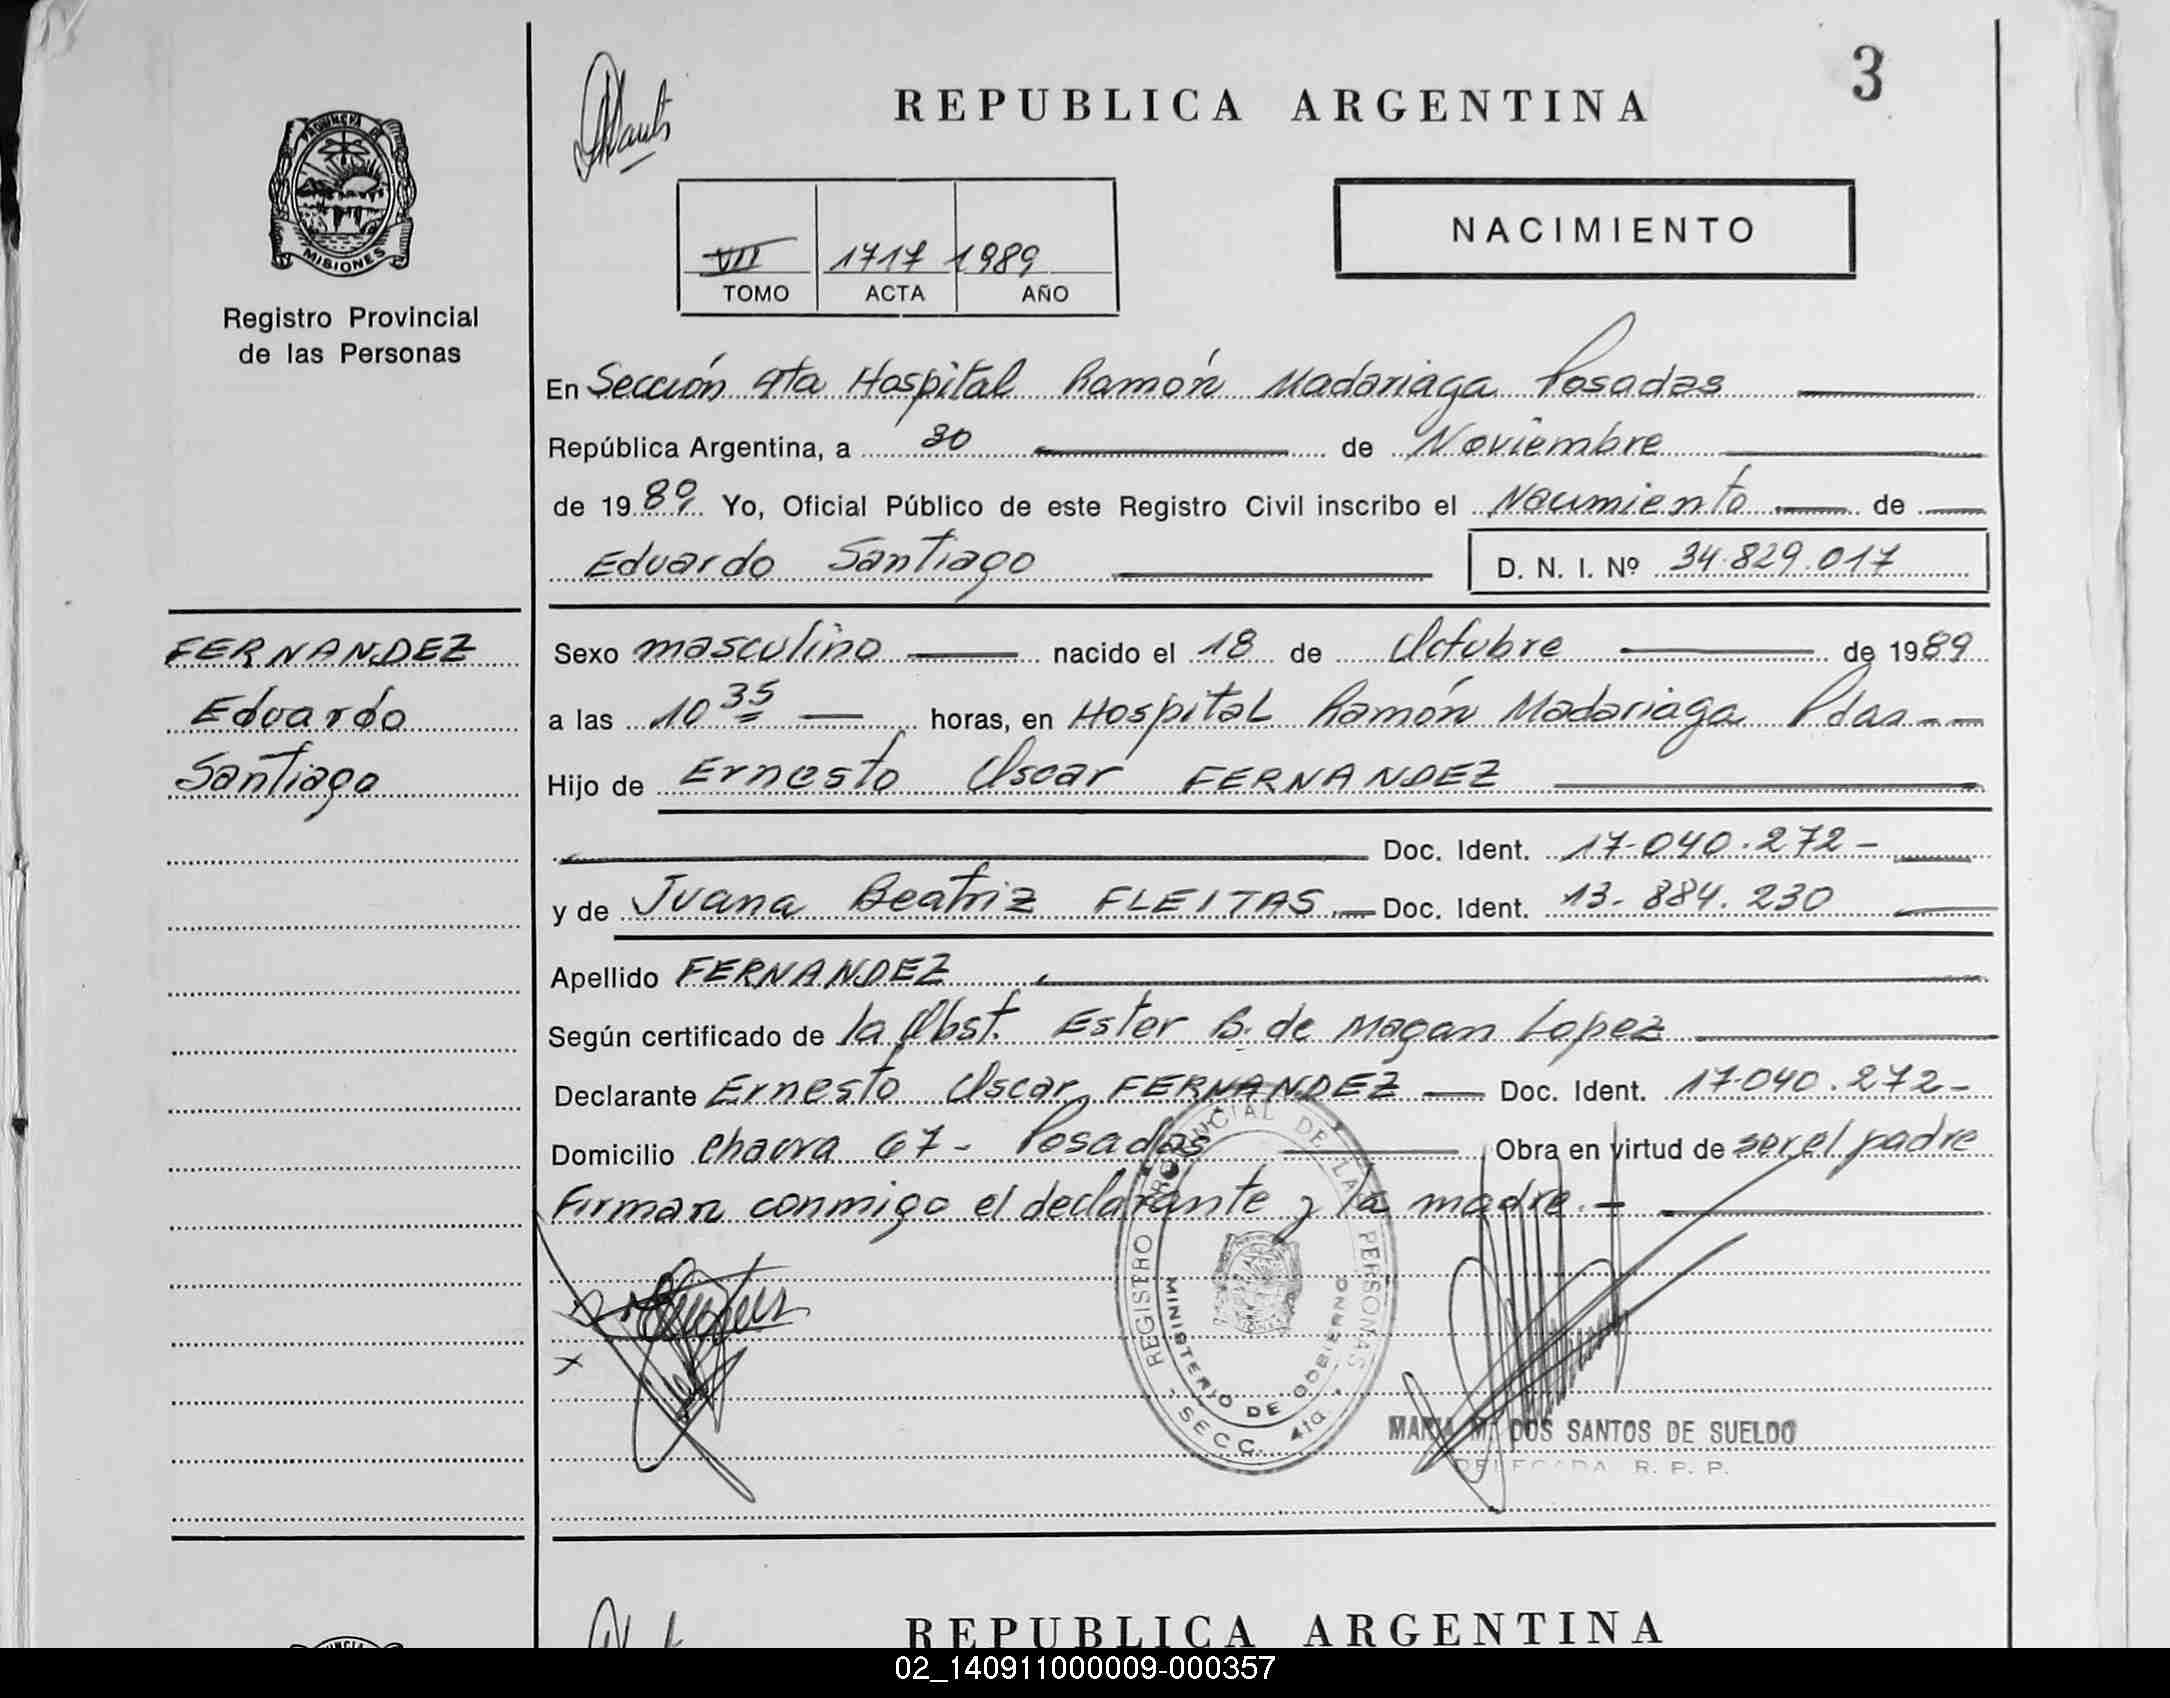 3
REPUBLICA ARGENTINA
PROVINCIA DE
MISIONES
Registro Provincial
de las Personas
NACIMIENTO
VII 1717 1989
TOMO ACTA AÑO
En Sección 4ta Hospital Ramón Madariaga Posadas
República Argentina, a 30 de Noviembre
de 1989 Yo, Oficial Público de este Registro Civil inscribo el Nacimiento de
Eduardo Santiago D. N. I. Nº 34.829.017
FERNANDEZ
Eduardo
Santiago
Sexo masculino nacido el 18 de Octubre de 1989
a las 10 35 horas, en Hospital Ramón Madariaga Pdas - -
Hijo de Ernesto Oscar FERNANDEZ
Doc. Ident. 17.040.272 -
y de Juana Beatriz FLEITAS Doc. Ident. 13.884.230
Apellido FERNANDEZ
Según certificado de la Obst. Ester B. de Magan Lopez
Declarante Ernesto Oscar FERNANDEZ Doc. Ident. 17.040.272 -
Domicilio Chacra 67 - Posadas Obra en virtud de ser el padre
Firman conmigo el declarante y la madre. -
REGISTRO PROVINCIAL DE LAS PERSONAS
MINISTERIO DE GOBIERNO
- SECC. 4ta. -
MARIA M. DOS SANTOS DE SUELDO
DELEGADA R. P. P.
REPUBLICA ARGENTINA
02_140911000009-000357